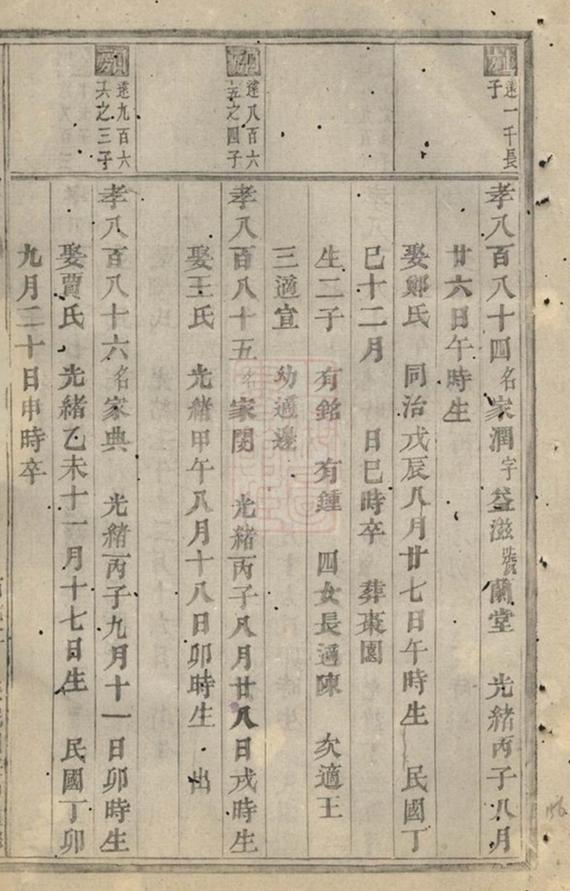 達一千長
子
孝八百八十四名家潤字益滋號蘭堂 光緒丙子八月
廿六日午時生
娶鄭氏 同治戊辰八月廿七日午時生 民國丁
巳十二月 日巳時卒 葬棗園
生二子 有銘 有鍾 四女長適陳 次適王
三適宣 幼適邊
達八百六
五之四子
孝八百八十五名家閔 光緒丙子八月廿八日戌時生
娶王氏 光緒甲午八月十八日卯時生 出
達九百六
六之三子
孝八百八十六名家典 光緒丙子九月十一日卯時生
娶賈氏 光緒乙未十一月十七日生 民國丁卯
九月二十日申時卒